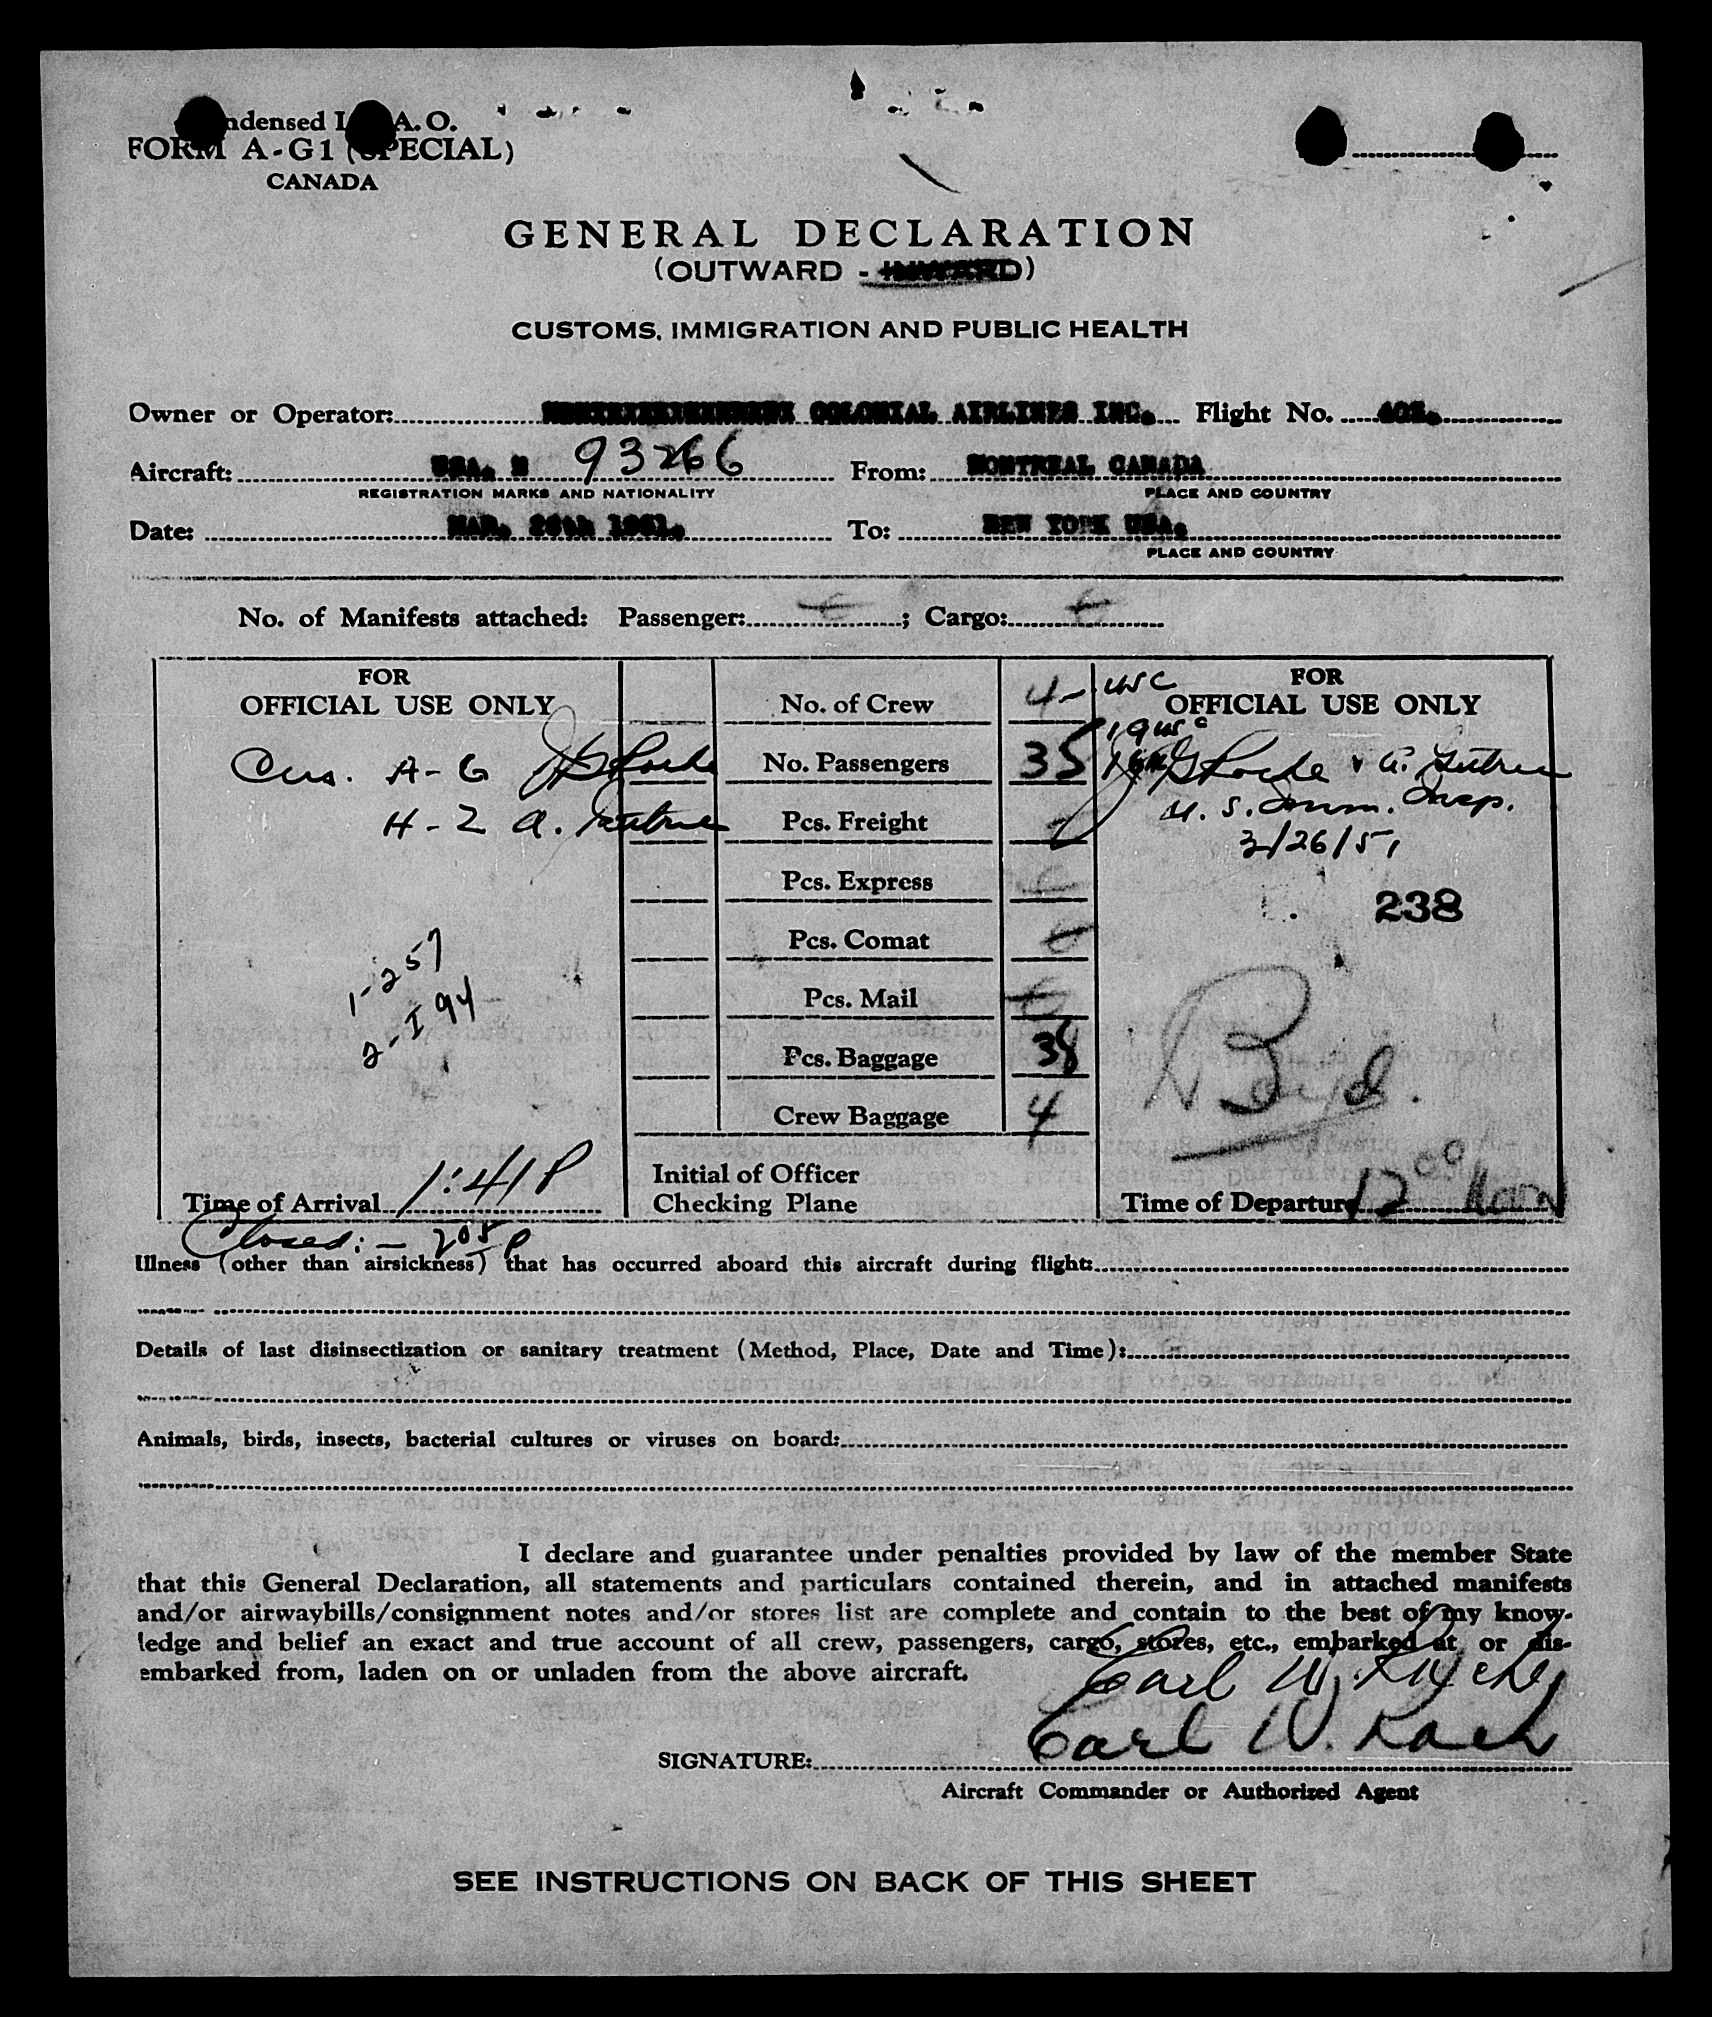 Condensed I. A. O.
FORM A-G1 (SPECIAL)
CANADA
GENERAL DECLARATION
(OUTWARD - INWARD)
CUSTOMS, IMMIGRATION AND PUBLIC HEALTH
Owner or Operator: COLONIAL AIRLINES INC. Flight No.
Aircraft: USA. N 93266 From: MONTREAL CANADA
REGISTRATION MARKS AND NATIONALITY PLACE AND COUNTRY
Date: MAR. 26th 1951. To: NEW YORK USA.
PLACE AND COUNTRY
No. of Manifests attached: Passenger: ; Cargo:
FOR OFFICIAL USE ONLY
A-G
H-Z A.
1-257
2-I94
Time of Arrival 1:41 P
Closed:- 205 P
No. of Crew 4
No. Passengers 35
Pcs. Freight
Pcs. Express
Pcs. Comat
Pcs. Mail
Pcs. Baggage 38
Crew Baggage 4
Initial of Officer
Checking Plane
FOR OFFICIAL USE ONLY
4- usc
19 usc
U. S. Imm. Insp.
3/26/51
238
Boyd.
Time of Departure 12 00 Noon
Illness (other than airsickness) that has occurred aboard this aircraft during flight:
Details of last disinsectization or sanitary treatment (Method, Place, Date and Time):
Animals, birds, insects, bacterial cultures or viruses on board:
I declare and guarantee under penalties provided by law of the member State
that this General Declaration, all statements and particulars contained therein, and in attached manifests
and/or airwaybills/consignment notes and/or stores list are complete and contain to the best of my know-
ledge and belief an exact and true account of all crew, passengers, cargo, stores, etc., embarked at or dis-
embarked from, laden on or unladen from the above aircraft.
Carl W.
SIGNATURE: Carl W. Koch
Aircraft Commander or Authorized Agent
SEE INSTRUCTIONS ON BACK OF THIS SHEET